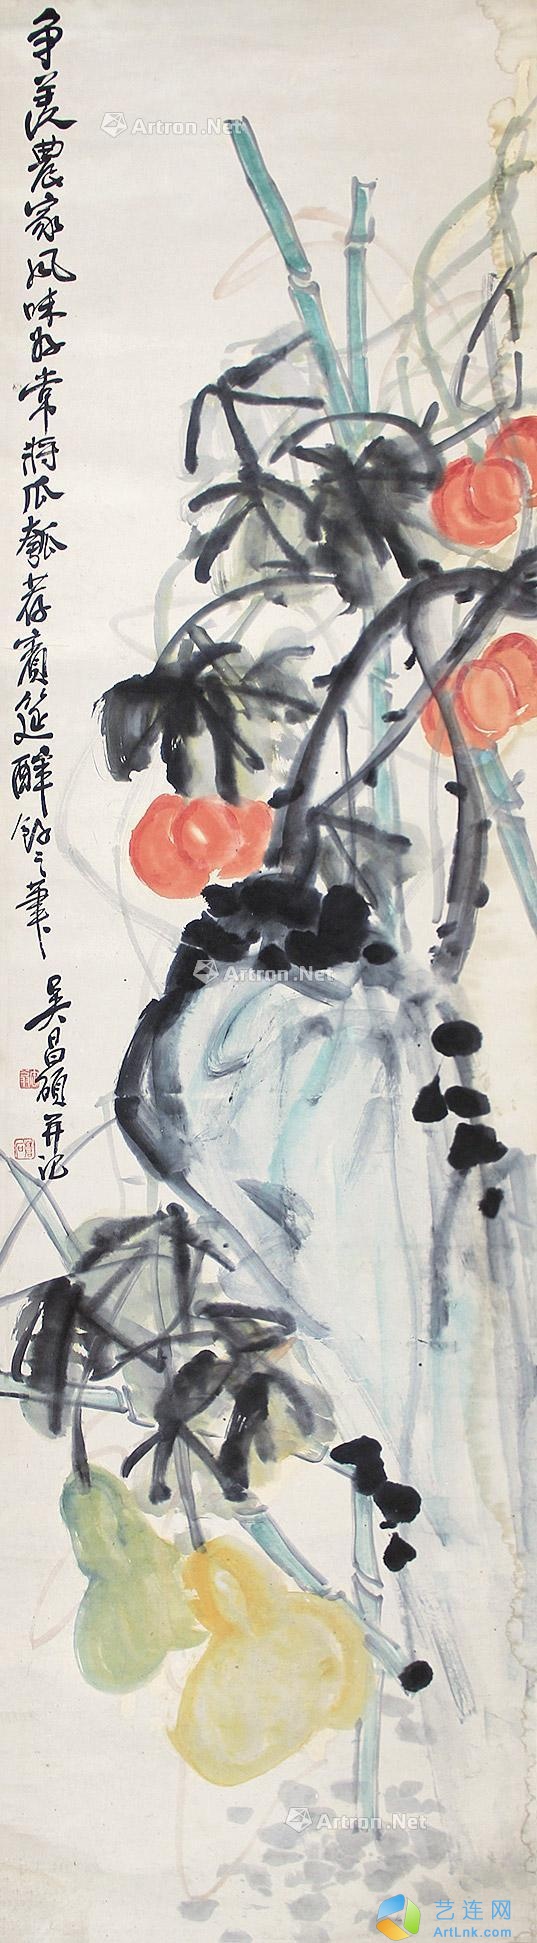 争羡農家风味好常將瓜瓠荐賓筵醉餘之筆
吴昌碩并记
Artron.Net
Artron.Net
Artron.Net
艺连网
ArtLnk.com